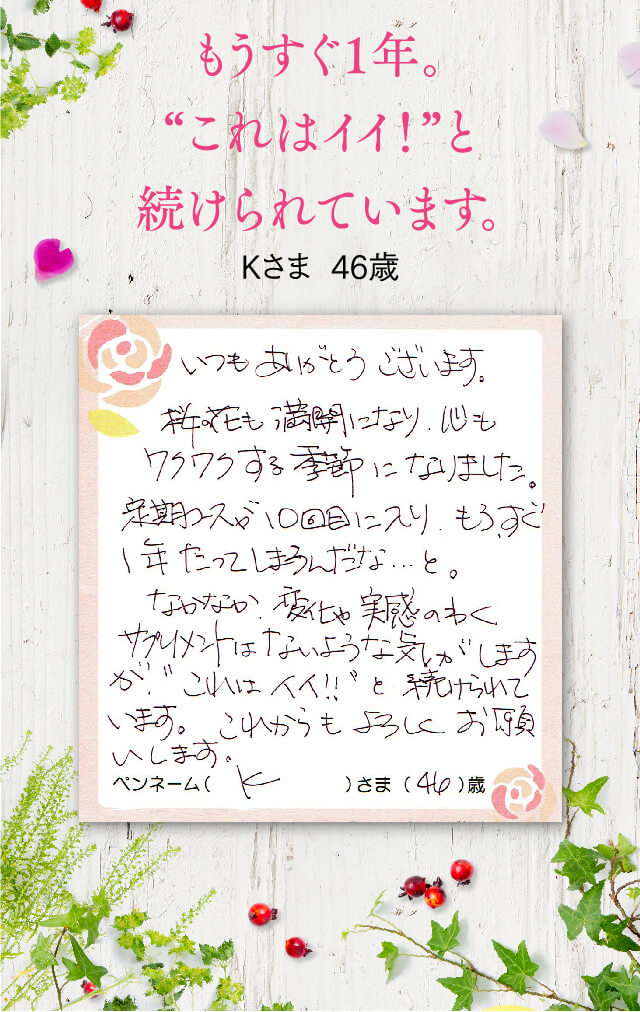 もうすぐ1年。
“これはイイ!”と
続けられています。
Kさま 46歳
いつもありがとうございます。
桜の花も満開になり、心も
ワクワクする季節になりました。
定期コースが10回目に入り、もうすぐ
1年たってしまうんだな…と。
なかなか、変化や実感のわく
サプリメントはないような気がします
が、“これはイイ!!”と続けられて
います。これからもよろしくお願
いします。
ペンネーム( K )さま (46)歳